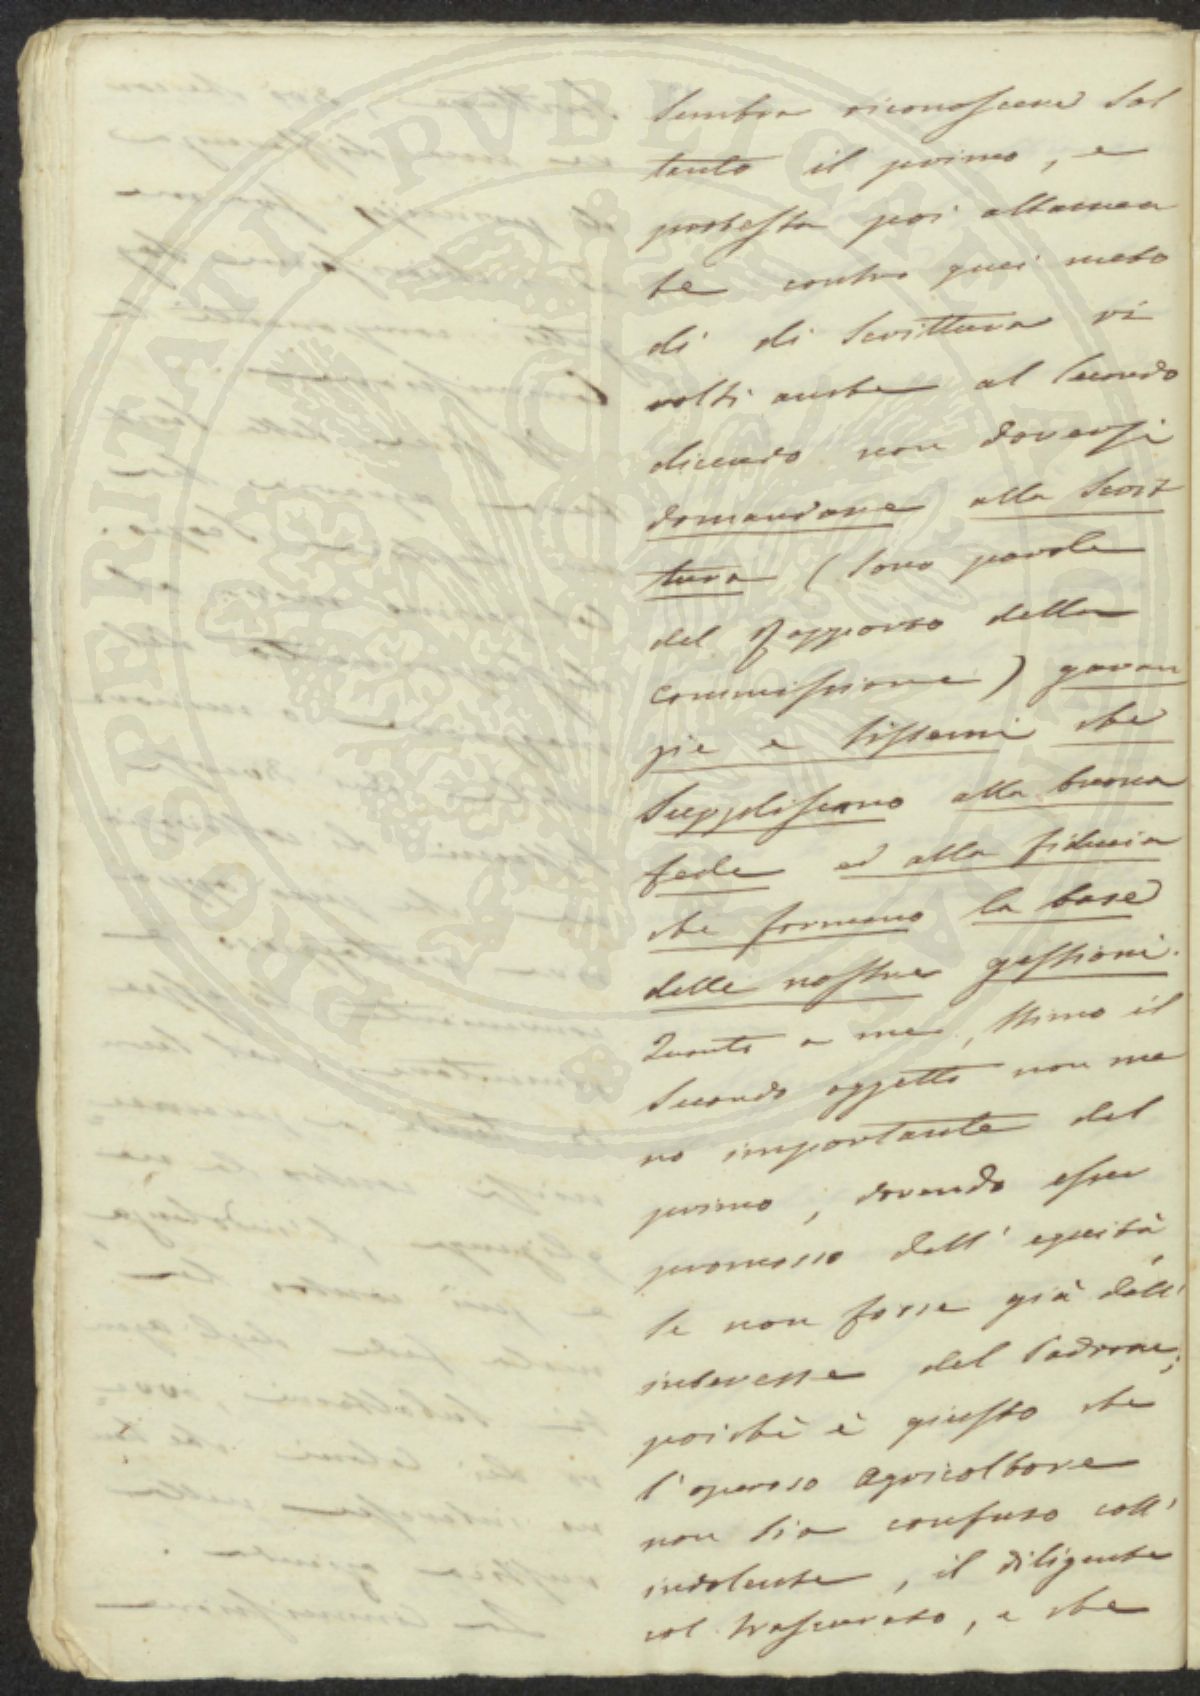 sembra riconoscere sol
tanto il primo, e
protesta poi altamen
te contro quei meto
di di Scrittura ri
volti anche al secondo
dicendo non doversi
domandare alla Scrit
tura (sono parole
del Rapporto della
Commissione) garan
zie e sistemi che
suppliscano alla buona
fede ed alla fiducia
che formano la base
delle nostre gestioni.
Quanto a me, stimo il
secondo oggetto non me
no importante del
primo, dovendo esser
promosso dall'equità,
se non fosse già dall'
interesse del Padrone;
poichè è giusto che
l'operoso Agricoltore
non sia confuso coll'
indolente, il diligente
col trascurato, e che
PROSPERITATI PVBLICAE AVGENDAE